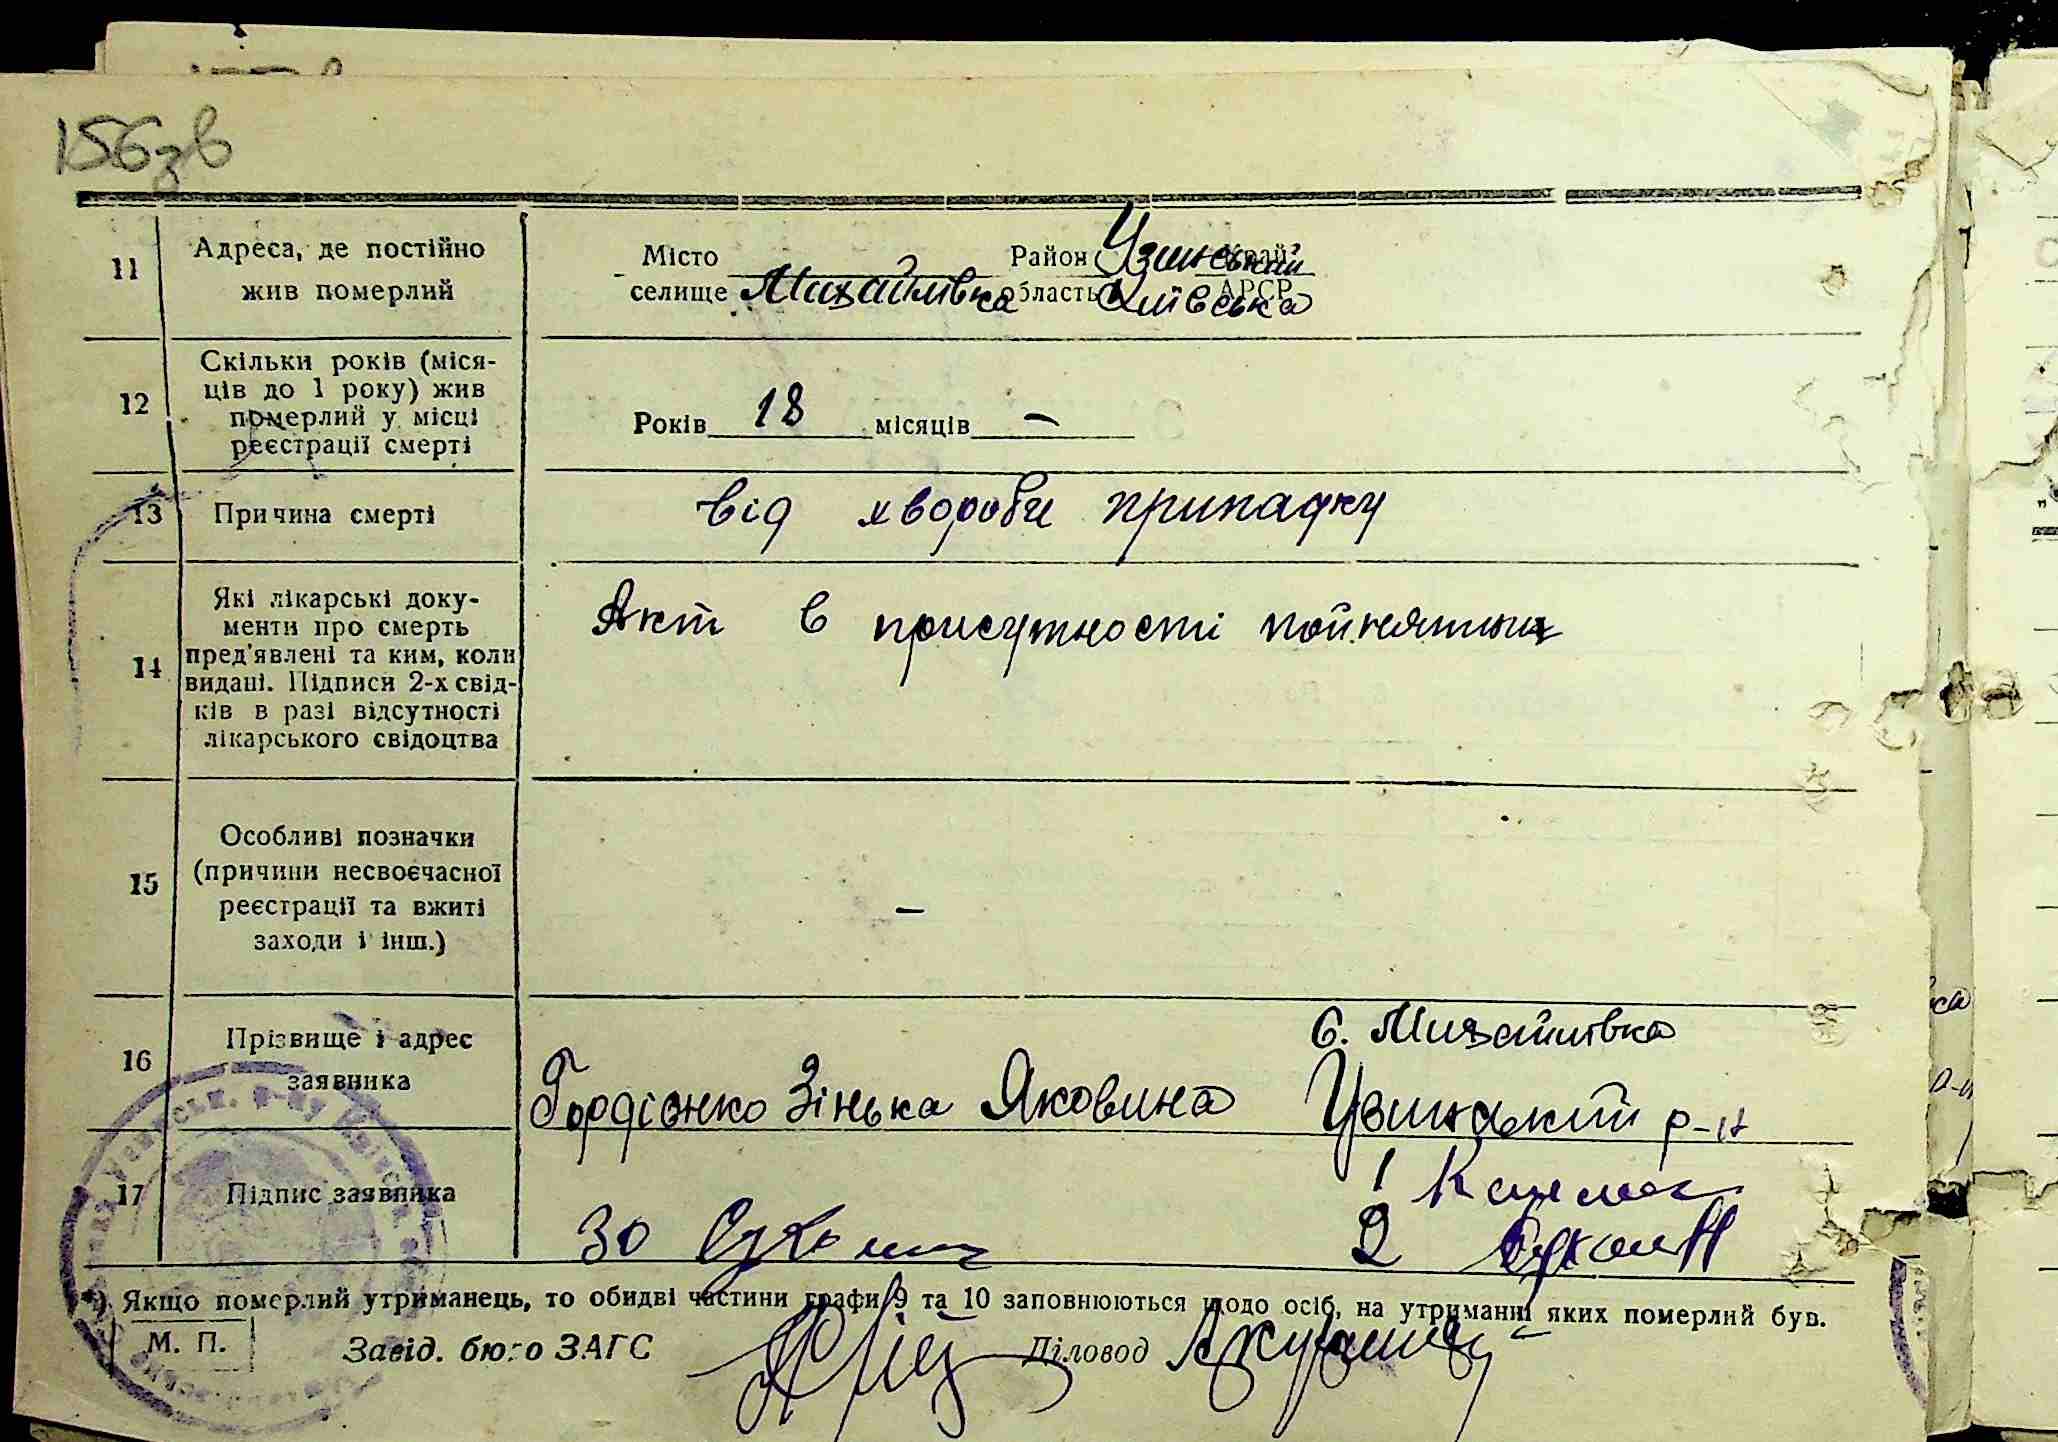 156зв
11 Адреса, де постійно жив померлий
Місто Район Узинський Край
селище Михайлівка область Київська АРСР
12 Скільки років (міся-
ців до 1 року) жив
померлий у місці
реєстрації смерті
Років 18 місяців –
13 Причина смерті
від хвороби припадку
14 Які лікарські доку-
менти про смерть
пред'явлені та ким, коли
видані. Підписи 2-х свід-
ків в разі відсутності
лікарського свідоцтва
Акт в присутності пойнятих
15 Особливі позначки
(причини несвоєчасної
реєстрації та вжиті
заходи і інш.)
–
16 Прізвище і адрес
заявника
с. Михайлівка
Гордієнко Зінька Яковина Узинський р-н
17 Підпис заявника
1
30 2
*) Якщо померлий утриманець, то обидві частини графи 9 та 10 заповнюються щодо осіб, на утриманні яких померлий був.
М. П. Завід. бюро ЗАГС Діловод